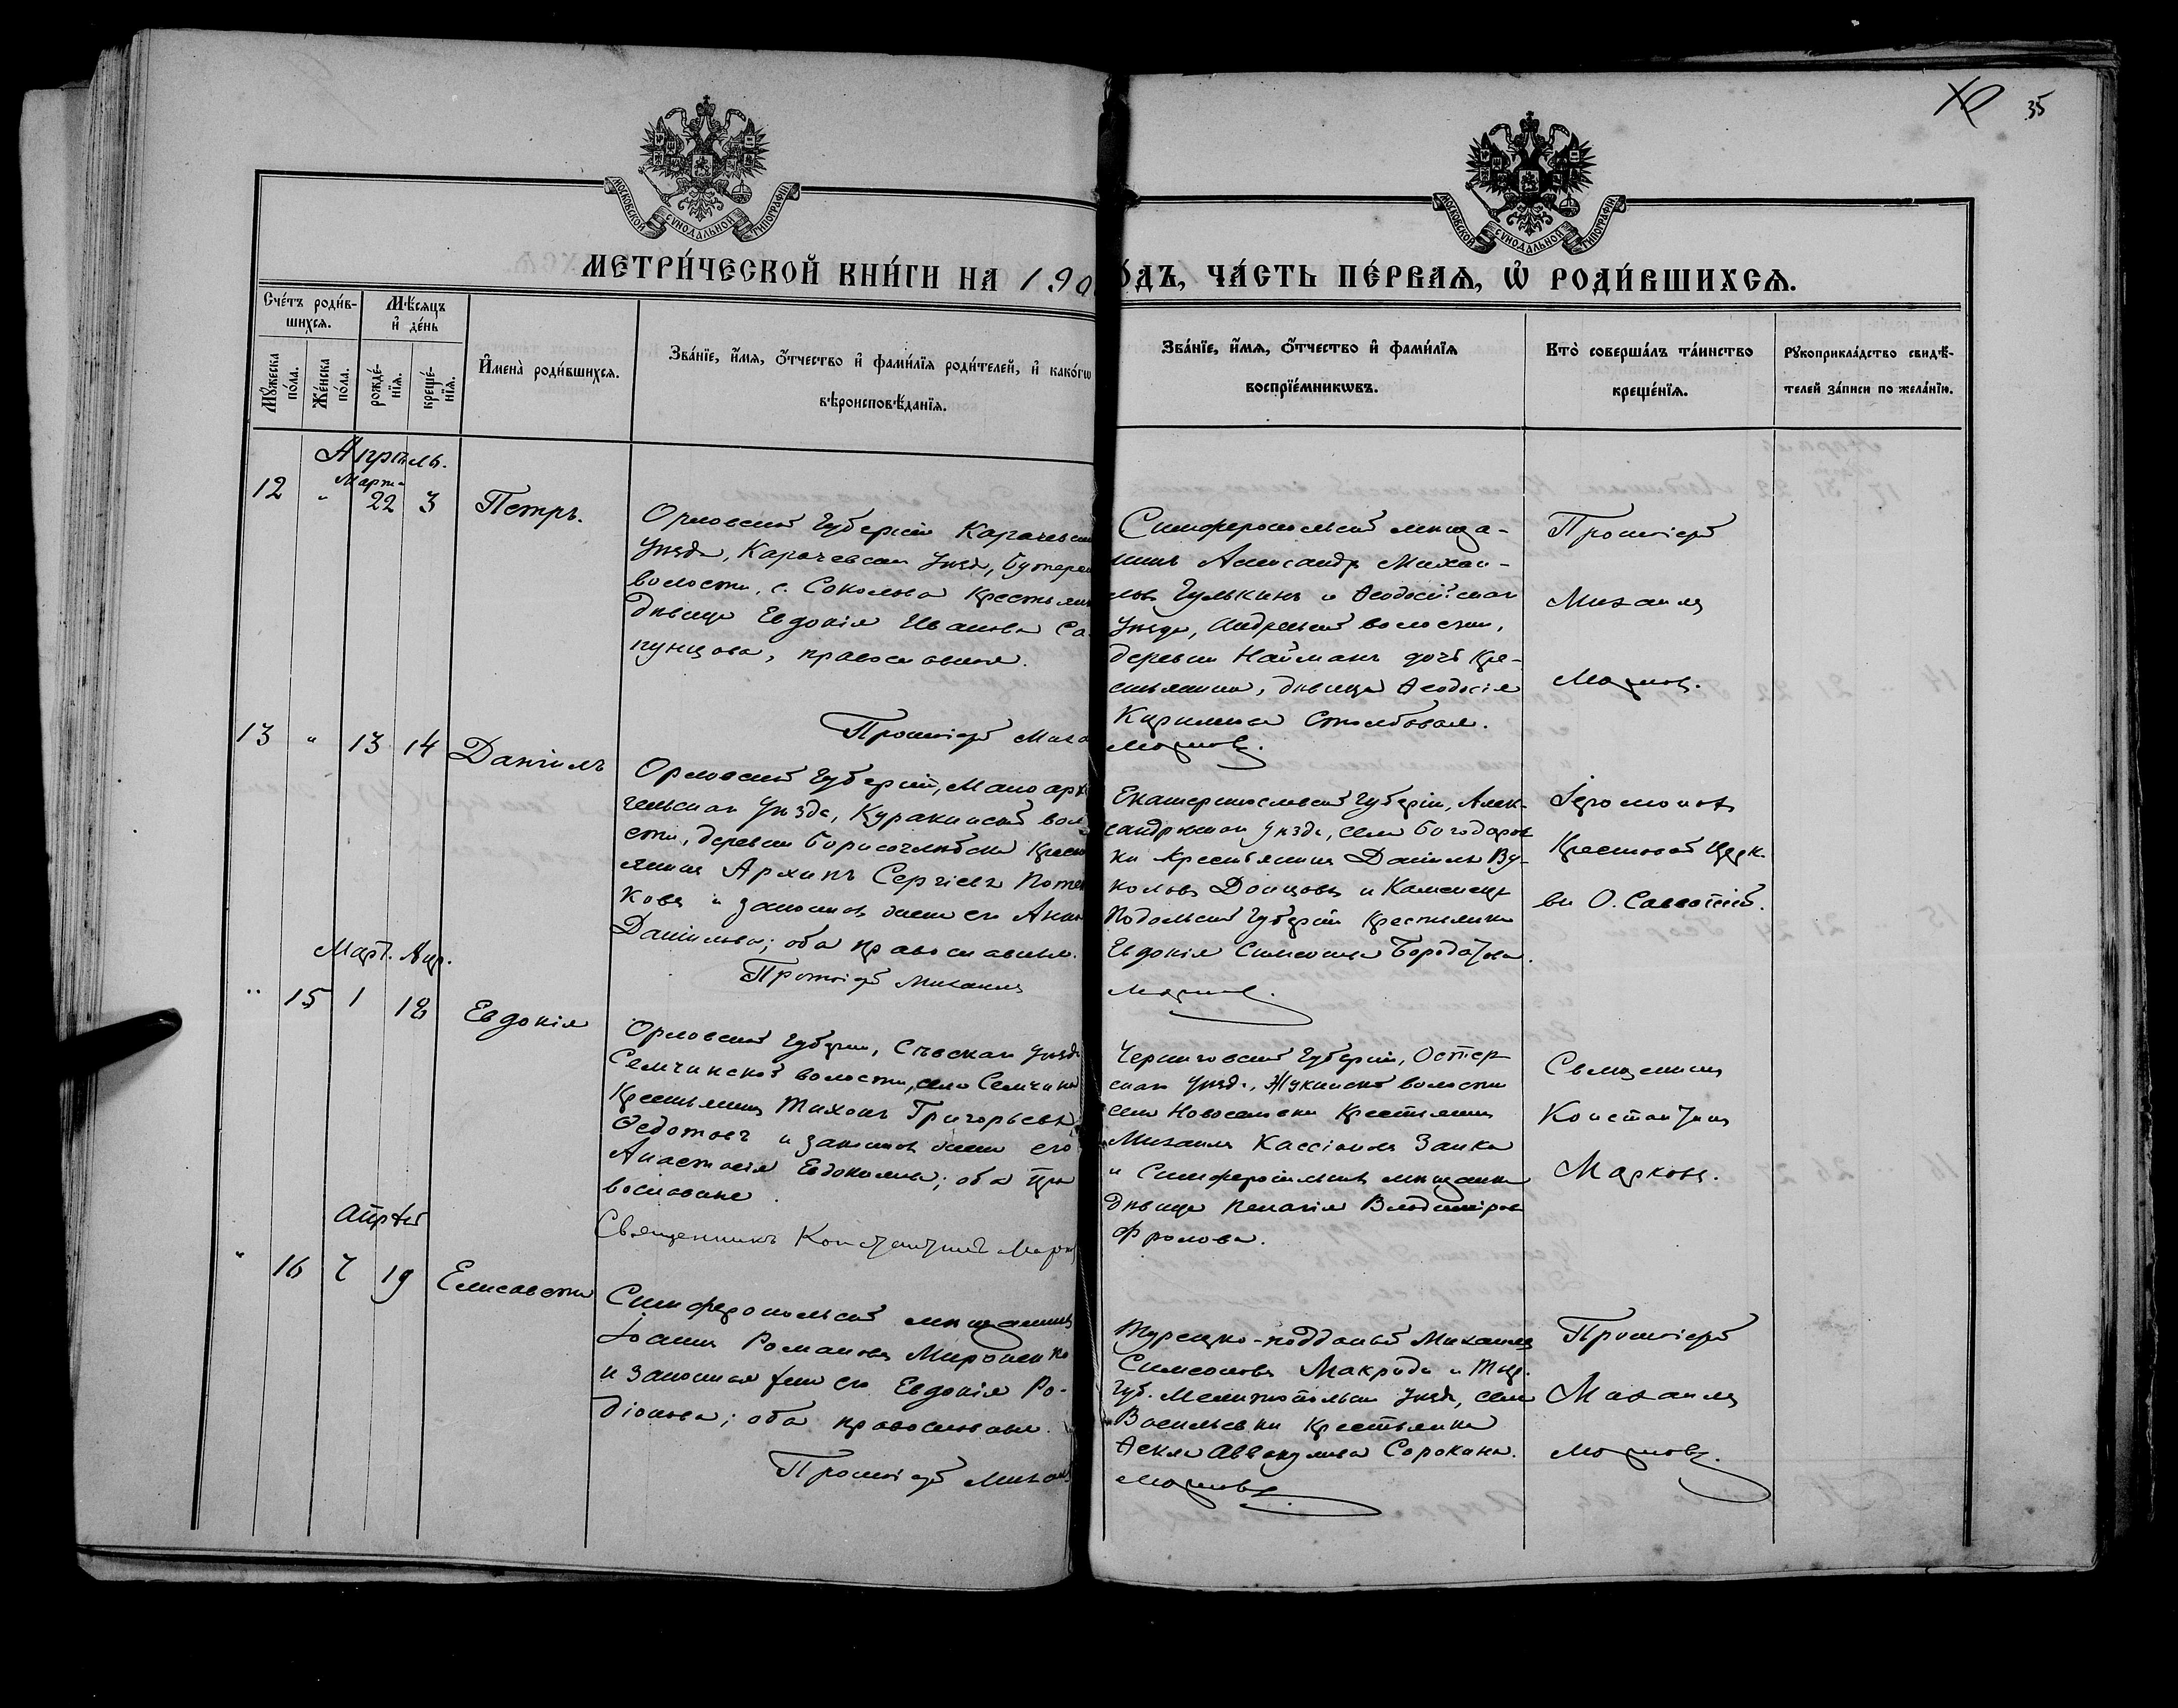 35
МОСКОВСКОЙ СУНОДАЛЬНОЙ ТИПОГРАФІИ
МОСКОВСКОЙ СУНОДАЛЬНОЙ ТИПОГРАФІИ
МЕТРИ́ЧЕСКОЙ КНИ́ГИ НА 190
О́ДЪ, ЧА́СТЬ ПЕ́РВАѦ, Ѡ҆ РОДИ́ВШИХСѦ.
Сче́тъ роди́в-
шихсѧ.
Мѣ́сѧцъ
и҆ де́нь
Мꙋ́жеска по́ла.
Же́нска по́ла.
рожде́-
нїѧ.
креще́-
нїѧ.
И҆мена̀ роди́вшихсѧ.
Зва́нїе, и҆́мѧ, ѻ҆́тчество и҆ фами́лїѧ роди́телей, и҆ како́гѡ
вѣроисповѣ́данїѧ.
Зва́нїе, и҆́мѧ, ѻ҆́тчество и҆ фами́лїѧ
воспрїе́мникѡвъ.
Кто̀ соверша́лъ та́инство
креще́нїѧ.
Рꙋкоприкла́дство свидѣ́-
телей за́писи по жела́нїю.
Апрѣль.
Март
12 " 22 3 Петръ.
Орловской Губерніи Карачевск
Уѣзда, Карачевскаго Уѣзд,
волости, с. Соколова крестьян
дѣвица Евдокія Иванова Са-
пунцова, православная.
Протоіерей Миха
Симферопольскій мѣща-
нинъ Александръ Михаи-
ловъ Гулькинъ и Ѳеодосійскаго
Уѣзда, Андреевской волости,
деревни Найманъ дочь кре-
стьянина, дѣвица Ѳеодосія
Столбовая.
Марковъ.
Протоіерей
Михаилъ
Марковъ.
13 " 13 14 Даніилъ
Орловской Губерніи, Малоарх
гельскаго Уѣзда, Куракинской вол
сти, деревни крест
янинъ Архипъ Сергіевъ
ковъ и законная жена его Анна
Даніилова; оба православные.
Протоіерей Михаилъ
Екатеринославской Губерніи, Алек-
сандровскаго Уѣзда, села Богодаров
ки крестьянинъ Даніилъ Ву-
коловъ Донцовъ и Каменецъ
Подольской Губерніи крестьянка
Евдокія Симеонова
Марковъ.
Іеромонахъ
Крестовой Церк
ви О. Савватій.
Март. Апр.
" 15 1 18 Евдокія
Орловской Губерніи, Сѣвскаго Уѣзда
Семчинской волости, села Семчина
Крестьянинъ Тихонъ Григорьевъ
Ѳедотовъ и законная жена его
Анастасія Евдокимова; оба пра
вославные.
Священникъ Константинъ Марк
Черниговской Губерніи, Остер-
скаго Уѣзда, Жукинской волости
села Новоселовки крестьянинъ
Михаилъ Кассіановъ Заика
и Симферопольская мѣщанка
дѣвица Пелагія Владимірова
Фролова.
Священникъ
Константинъ
Марковъ.
Апрѣль
" 16 7 19 Елисавета
Симферопольскій мѣщанинъ
Іоаннъ Романовъ Мироненко
и законная жена его Евдокія Ро-
діонова; оба православные.
Протоіерей Михаилъ
Турецко-подданый Михаилъ
Симеоновъ Макриди и Тавр.
Губ. Мелитопольскаго Уѣзда, села
Васильевки крестьянка
Ѳекла Аввакумова Сорокина.
Марковъ
Протоіерей
Михаилъ
Марковъ.